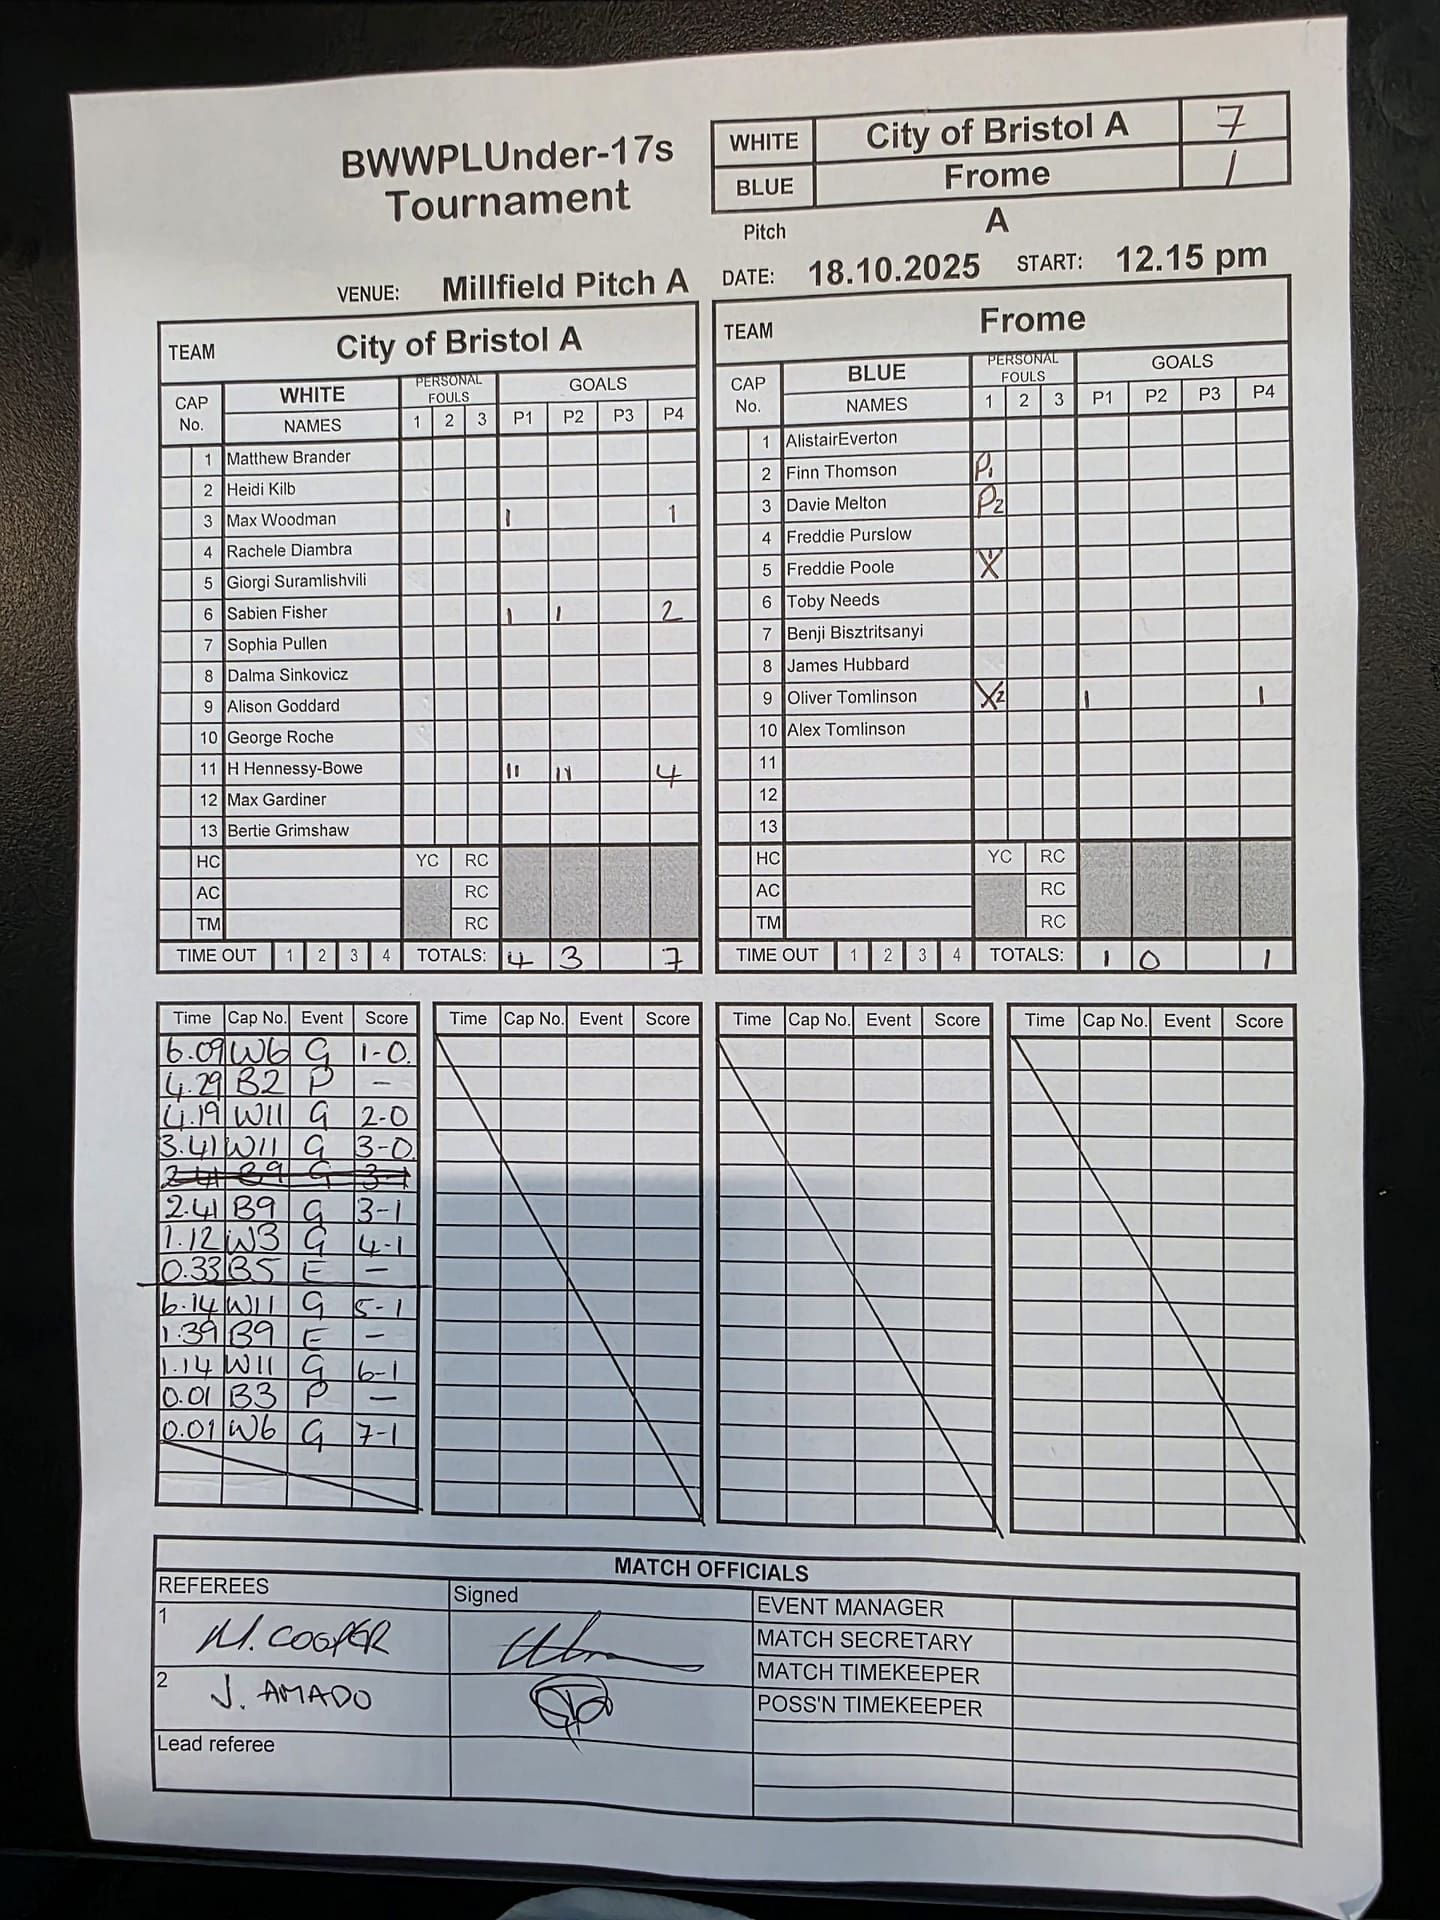 BWWPLUnder-17s
Tournament
WHITE City of Bristol A 7
BLUE Frome 1
Pitch A
VENUE: Millfield Pitch A DATE: 18.10.2025 START: 12.15 pm
TEAM City of Bristol A
CAP No. WHITE PERSONAL FOULS GOALS
NAMES 1 2 3 P1 P2 P3 P4
1 Matthew Brander
2 Heidi Kilb
3 Max Woodman 1 1
4 Rachele Diambra
5 Giorgi Suramlishvili
6 Sabien Fisher 1 1 2
7 Sophia Pullen
8 Dalma Sinkovicz
9 Alison Goddard
10 George Roche
11 H Hennessy-Bowe 11 11 4
12 Max Gardiner
13 Bertie Grimshaw
HC YC RC
AC RC
TM RC
TIME OUT 1 2 3 4 TOTALS: 4 3 7
TEAM Frome
CAP No. BLUE PERSONAL FOULS GOALS
NAMES 1 2 3 P1 P2 P3 P4
1 AlistairEverton
2 Finn Thomson P1
3 Davie Melton P2
4 Freddie Purslow
5 Freddie Poole X
6 Toby Needs
7 Benji Bisztritsanyi
8 James Hubbard
9 Oliver Tomlinson X2 1 1
10 Alex Tomlinson
11
12
13
HC YC RC
AC RC
TM RC
TIME OUT 1 2 3 4 TOTALS: 1 0 1
Time Cap No. Event Score
6.09 W6 G 1-0.
4.29 B2 P –
4.19 W11 G 2-0
3.41 W11 G 3-0
2.41 B9 G 3-1
2.41 B9 G 3-1
1.12 W3 G 4-1
0.33 B5 E –
6.14 W11 G 5-1
1.39 B9 E –
1.14 W11 G 6-1
0.01 B3 P –
0.01 W6 G 7-1
Time Cap No. Event Score
Time Cap No. Event Score
Time Cap No. Event Score
MATCH OFFICIALS
REFEREES Signed
1 M. COOPER
2 J. AMADO
Lead referee
EVENT MANAGER
MATCH SECRETARY
MATCH TIMEKEEPER
POSS'N TIMEKEEPER